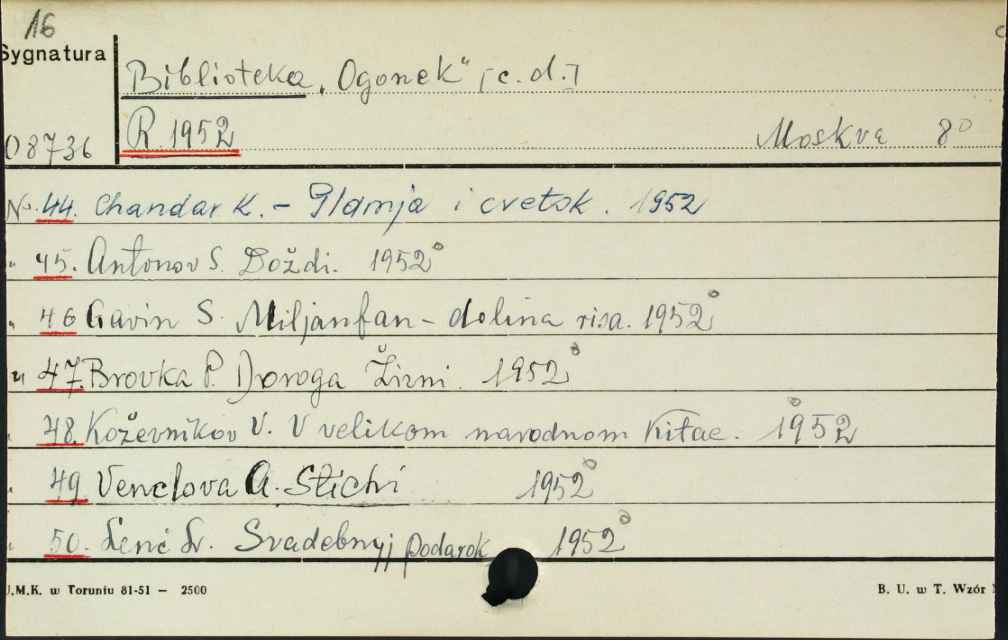 16
Sygnatura
Biblioteka „Ogonek" [c. d.]
08736 R. 1952 Moskva 8°
No. 44. Chandar K. - Plamja i cvetok. 1952
" 45. Antonov S. Doždi. 1952
" 46 Gavin S. Miljanfan - dolina risa. 1952
" 47. Brovka P. Doroga Žizni. 1952
" 48. Koževnikov V. V velikom narodnom Kitae. 1952
" 49. Venclova A. Stichi 1952
" 50. Svadebnyj podarok 1952
U.M.K. w Toruniu 81-51 — 2500 B. U. w T. Wzór